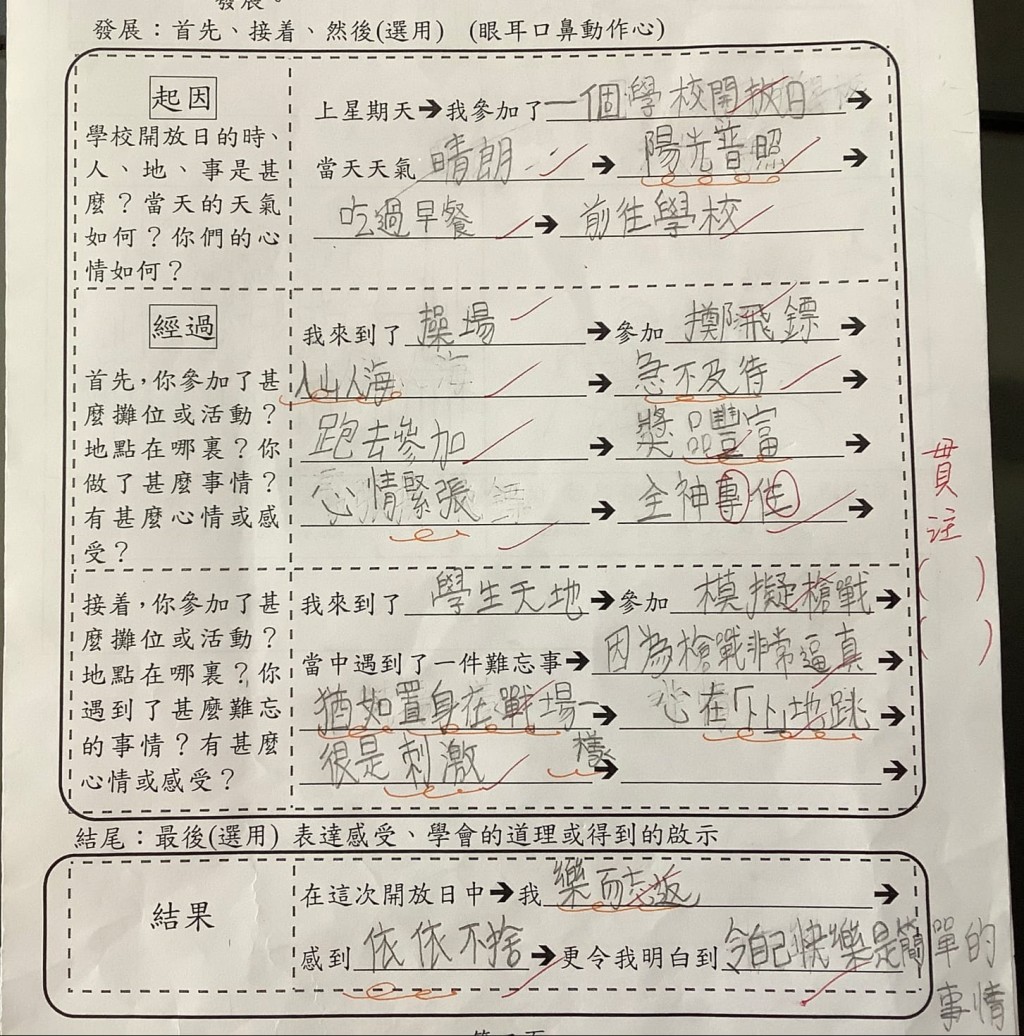 發展。
發展：首先、接着、然後(選用) (眼耳口鼻動作心)
起因
學校開放日的時、
人、地、事是甚
麼？當天的天氣
如何？你們的心
情如何？
上星期天→我參加了一個學校開放日→
當天天氣晴朗→陽光普照→
吃過早餐→前往學校
經過
首先，你參加了甚
麼攤位或活動？
地點在哪裏？你
做了甚麼事情？
有甚麼心情或感
受？
我來到了操場→參加擲飛鏢→
人山人海→急不及待→
跑去參加→獎品豐富→
心情緊張→全神專住→
貫注
( )
( )
接着，你參加了甚
麼攤位或活動？
地點在哪裏？你
遇到了甚麼難忘
的事情？有甚麼
心情或感受？
我來到了學生天地→參加模擬槍戰→
當中遇到了一件難忘事→因為槍戰非常逼真→
猶如置身在戰場一樣→心在「卜卜」地跳→
很是刺激→→
結尾：最後(選用) 表達感受、學會的道理或得到的啟示
結果
在這次開放日中→我樂而忘返→
感到依依不捨→更令我明白到令自己快樂是簡單的
事情